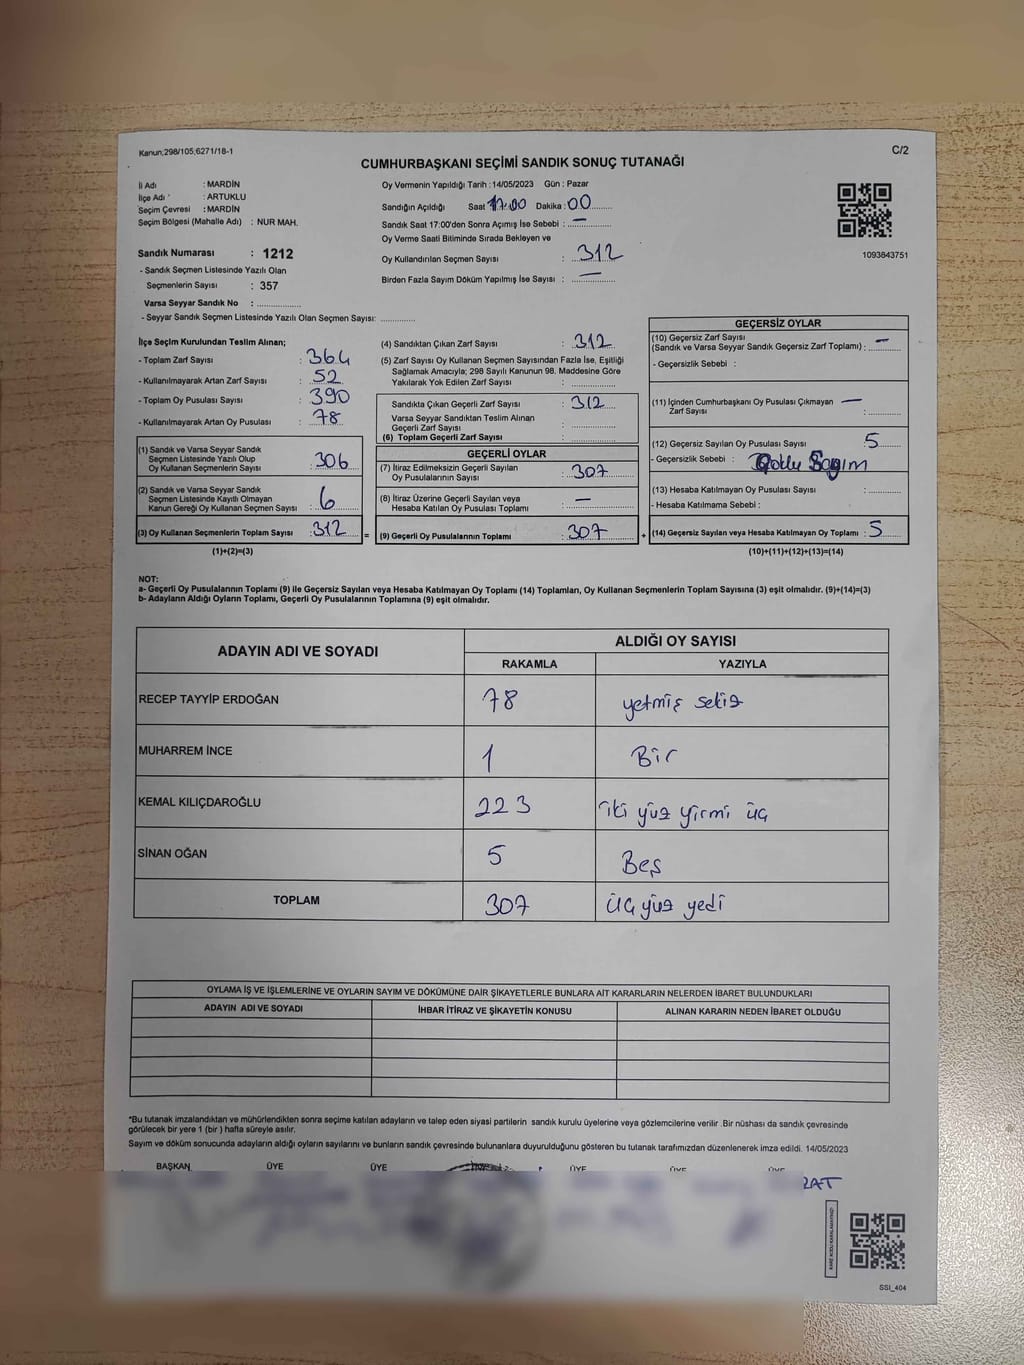 Kanun;298/105;6271/18-1
C/2
CUMHURBAŞKANI SEÇİMİ SANDIK SONUÇ TUTANAĞI
İl Adı : MARDİN
İlçe Adı : ARTUKLU
Seçim Çevresi : MARDİN
Seçim Bölgesi (Mahalle Adı) : NUR MAH.
Sandık Numarası : 1212
- Sandık Seçmen Listesinde Yazılı Olan
Seçmenlerin Sayısı : 357
Varsa Seyyar Sandık No : ..............
- Seyyar Sandık Seçmen Listesinde Yazılı Olan Seçmen Sayısı: ............
Oy Vermenin Yapıldığı Tarih : 14/05/2023 Gün : Pazar
Sandığın Açıldığı Saat 17:00 Dakika : 00
Sandık Saat 17:00'den Sonra Açımış İse Sebebi : —
Oy Verme Saati Bitiminde Sırada Bekleyen ve
Oy Kullandırılan Seçmen Sayısı : 312
Birden Fazla Sayım Döküm Yapılmış İse Sayısı : —
1093843751
İlçe Seçim Kurulundan Teslim Alınan;
- Toplam Zarf Sayısı : 364
- Kullanılmayarak Artan Zarf Sayısı : 52
- Toplam Oy Pusulası Sayısı : 390
- Kullanılmayarak Artan Oy Pusulası : 78
(1) Sandık ve Varsa Seyyar Sandık
Seçmen Listesinde Yazılı Olup
Oy Kullanan Seçmenlerin Sayısı : 306
(2) Sandık ve Varsa Seyyar Sandık
Seçmen Listesinde Kayıtlı Olmayan
Kanun Gereği Oy Kullanan Seçmen Sayısı : 6
(3) Oy Kullanan Seçmenlerin Toplam Sayısı : 312 =
(1)+(2)=(3)
(4) Sandıktan Çıkan Zarf Sayısı : 312
(5) Zarf Sayısı Oy Kullanan Seçmen Sayısından Fazla İse, Eşitliği
Sağlamak Amacıyla; 298 Sayılı Kanunun 98. Maddesine Göre
Yakılarak Yok Edilen Zarf Sayısı : ............
Sandıkta Çıkan Geçerli Zarf Sayısı : 312
Varsa Seyyar Sandıktan Teslim Alınan
Geçerli Zarf Sayısı : ............
(6) Toplam Geçerli Zarf Sayısı : ............
GEÇERLİ OYLAR
(7) İtiraz Edilmeksizin Geçerli Sayılan
Oy Pusulalarının Sayısı : 307
(8) İtiraz Üzerine Geçerli Sayılan veya
Hesaba Katılan Oy Pusulası Toplamı : —
(9) Geçerli Oy Pusulalarının Toplamı : 307 +
GEÇERSİZ OYLAR
(10) Geçersiz Zarf Sayısı
(Sandık ve Varsa Seyyar Sandık Geçersiz Zarf Toplamı) : —
- Geçersizlik Sebebi :
(11) İçinden Cumhurbaşkanı Oy Pusulası Çıkmayan —
Zarf Sayısı : ............
(12) Geçersiz Sayılan Oy Pusulası Sayısı : 5
- Geçersizlik Sebebi :
(13) Hesaba Katılmayan Oy Pusulası Sayısı : ............
- Hesaba Katılmama Sebebi :
(14) Geçersiz Sayılan veya Hesaba Katılmayan Oy Toplamı : 5
(10)+(11)+(12)+(13)=(14)
NOT:
a- Geçerli Oy Pusulalarının Toplamı (9) ile Geçersiz Sayılan veya Hesaba Katılmayan Oy Toplamı (14) Toplamları, Oy Kullanan Seçmenlerin Toplam Sayısına (3) eşit olmalıdır. (9)+(14)=(3)
b- Adayların Aldığı Oyların Toplamı, Geçerli Oy Pusulalarının Toplamına (9) eşit olmalıdır.
ADAYIN ADI VE SOYADI
ALDIĞI OY SAYISI
RAKAMLA YAZIYLA
RECEP TAYYİP ERDOĞAN 78 yetmiş sekiz
MUHARREM İNCE 1 Bir
KEMAL KILIÇDAROĞLU 223 iki yüz yirmi üç
SİNAN OĞAN 5 Beş
TOPLAM 307 üç yüz yedi
OYLAMA İŞ VE İŞLEMLERİNE VE OYLARIN SAYIM VE DÖKÜMÜNE DAİR ŞİKAYETLERLE BUNLARA AİT KARARLARIN NELERDEN İBARET BULUNDUKLARI
ADAYIN ADI VE SOYADI İHBAR İTİRAZ VE ŞİKAYETİN KONUSU ALINAN KARARIN NEDEN İBARET OLDUĞU
*Bu tutanak imzalandıktan ve mühürlendikten sonra seçime katılan adayların ve talep eden siyasi partilerin sandık kurulu üyelerine veya gözlemcilerine verilir .Bir nüshası da sandık çevresinde
görülecek bir yere 1 (bir ) hafta süreyle asılır.
Sayım ve döküm sonucunda adayların aldığı oyların sayılarını ve bunların sandık çevresinde bulunanlara duyurulduğunu gösteren bu tutanak tarafımızdan düzenlenerek imza edildi. 14/05/2023
BAŞKAN ÜYE ÜYE ÜYE ÜYE ÜYE
KARE KODU KARALAMAYINIZ!
SSI_404